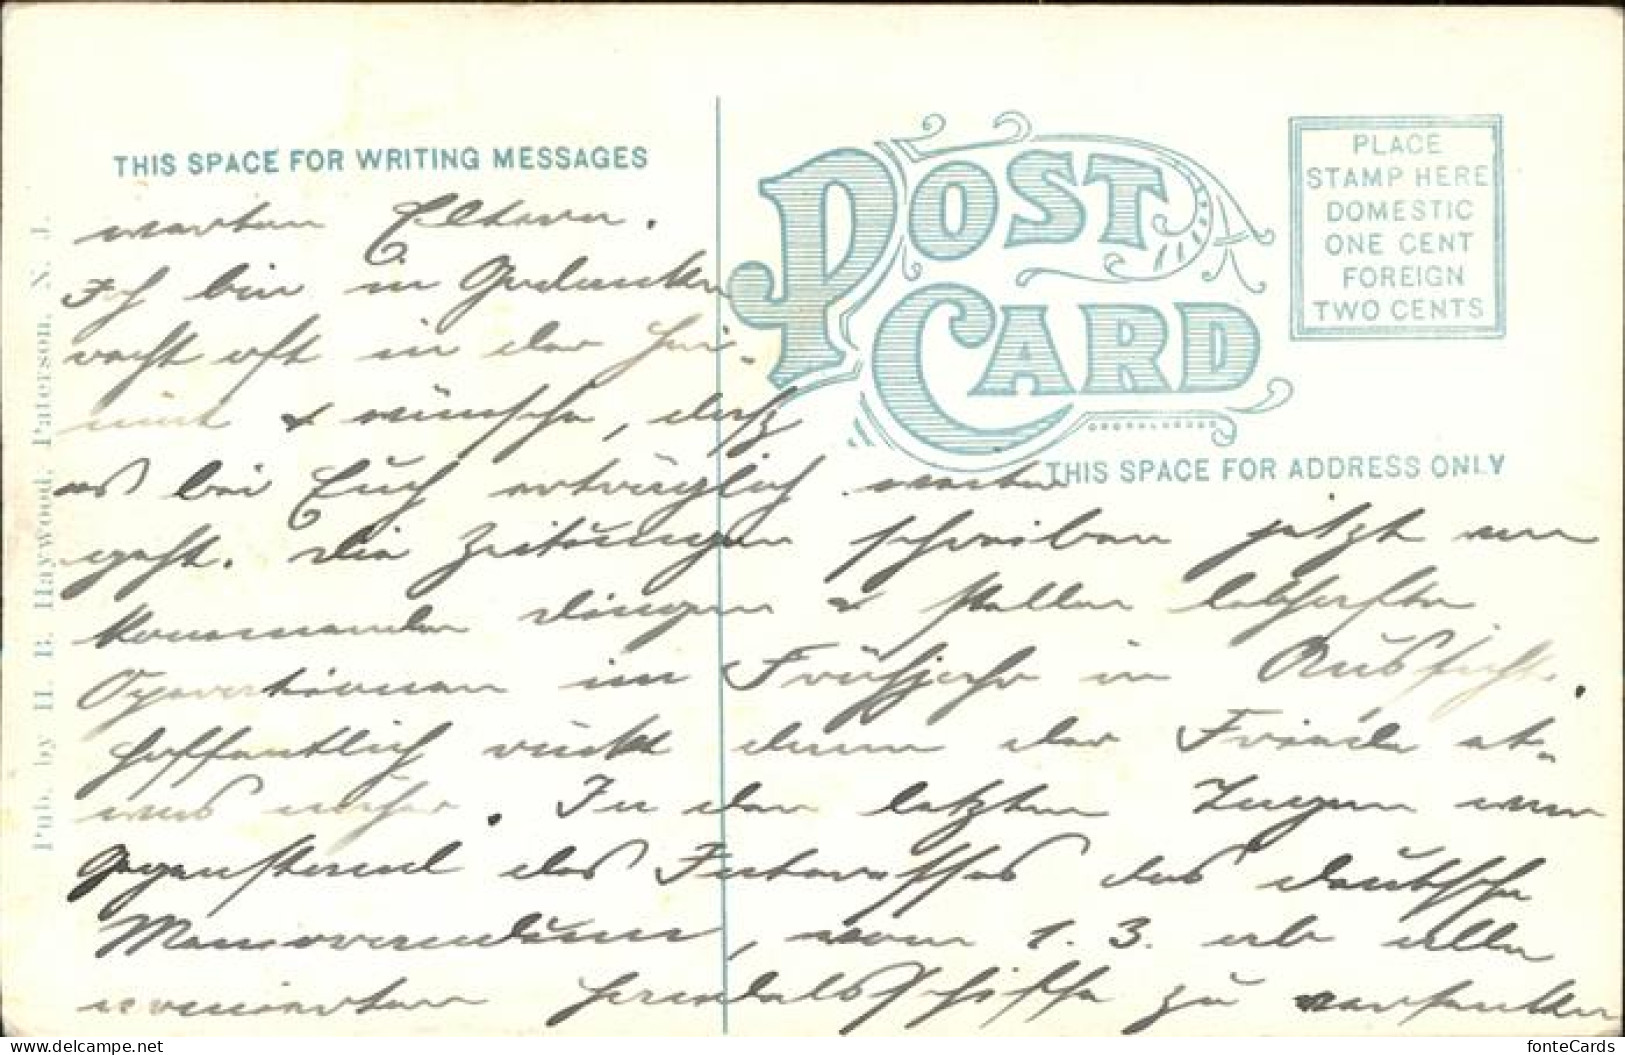 THIS SPACE FOR WRITING MESSAGES
POST CARD
PLACE
STAMP HERE
DOMESTIC
ONE CENT
FOREIGN
TWO CENTS
THIS SPACE FOR ADDRESS ONLY
Pub. by H. B. Haywood, Paterson, N. J.
werten Eltern.
Ich bin in Gedanken
recht oft in der Hei-
mat & wünsche, daß
es bei Euch erträglich weiter
geht. Die Zeitungen schreiben jetzt von
kommenden Dingen & stellen lebhafte
Operationen im Frühjahr in Aussicht.
Hoffentlich rückt dann der Friede et-
was näher. In den letzten Tagen war
Gegenstand des Interesses das deutsche
Memorandum, vom 1. 3. ab alle
armierten Handelsschiffe zu versenken
fonteCards